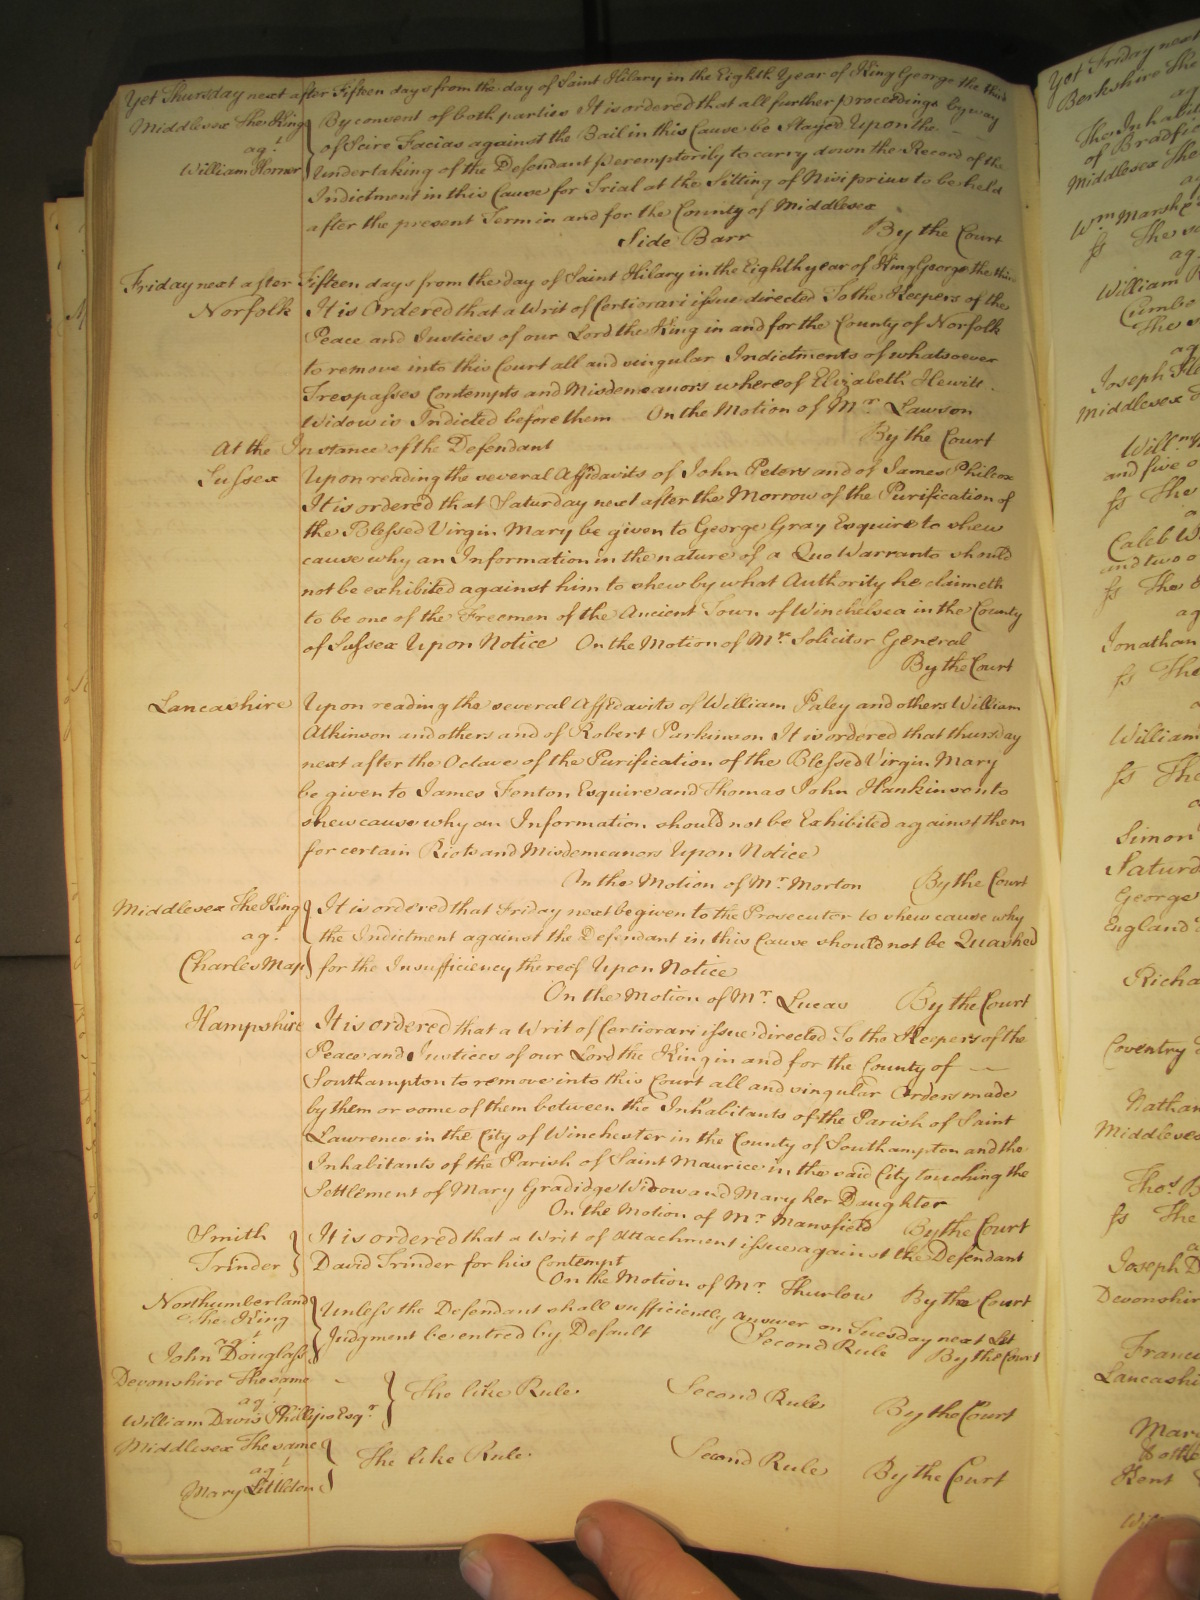 Yet Thursday next after Fifteen days from the day of Saint Hilary in the Eighth Year of King George the third
Middlesex The King
agt
William Horner
By consent of both parties It is ordered that all further proceedings by way
of Scire Facias against the Bail in this Cause be Stayed Upon the
Undertaking of the Defendant peremptorily to carry down the Record of the
Indictment in this Cause for Trial at the Sitting of Nisi prius to be held
after the present Term in and for the County of Middlesex
Side Barr By the Court
Friday next after Fifteen days from the day of Saint Hilary in the Eighth year of King George the third
Norfolk It is Ordered that a Writ of Certiorari issue directed To the Keepers of the
Peace and Justices of our Lord the King in and for the County of Norfolk
to remove into this Court all and singular Indictments of whatsoever
Trespasses Contempts and Misdemeanors whereof Elizabeth Hewitt
Widow is Indicted before them On the Motion of Mr. Lawson
At the Instance of the Defendant By the Court
Sussex Upon reading the several Affidavits of John Peters and of James Philcox
It is ordered that Saturday next after the Morrow of the Purification of
the Blessed Virgin Mary be given to George Gray Esquire to shew
cause why an Information in the nature of a Quo Warranto should
not be exhibited against him to shew by what Authority he claimeth
to be one of the Freemen of the Ancient Town of Winchelsea in the County
of Sussex Upon Notice On the Motion of Mr. Solicitor General
By the Court
Lancashire Upon reading the several Affidavits of William Paley and others William
Atkinson and others and of Robert Parkinson It is ordered that thursday
next after the Octave of the Purification of the Blessed Virgin Mary
be given to James Fenton Esquire and Thomas John Hankinson to
shew cause why an Information should not be Exhibited against them
for certain Riots and Misdemeanors Upon Notice
On the Motion of Mr. Morton By the Court
Middlesex The King
agt.
Charles Map
It is ordered that Friday next be given to the Prosecutor to shew cause why
the Indictment against the Defendant in this Cause should not be Quashed
for the Insufficiency thereof Upon Notice
On the Motion of Mr. Lucas By the Court
Hampshire It is ordered that a Writ of Certiorari issue directed To the Keepers of the
Peace and Justices of our Lord the King in and for the County of
Southampton to remove into this Court all and singular Orders made
by them or some of them between the Inhabitants of the Parish of Saint
Lawrence in the City of Winchester in the County of Southampton and the
Inhabitants of the Parish of Saint Maurice in the said City touching the
Settlement of Mary Gradidge Widow and Mary her Daughter
On the Motion of Mr. Mansfield By the Court
Smith
Trinder
It is ordered that a Writ of Attachment issue against the Defendant
David Trinder for his Contempt
On the Motion of Mr. Thurlow By the Court
Northumberland
The King
agt
John Douglass
Unless the Defendant shall sufficiently answer on Tuesday next Let
Judgment be entred by Default Second Rule By the Court
Devonshire The same
agt
William Davis Phillips Esqr.
The like Rule Second Rule By the Court
Middlesex The same
agt
Mary Littleton
The like Rule Second Rule By the Court
Yet Friday next
Berkshire The
ag
The Inhabit
of Bradfi
Middlesex The
ag
Wm Marsh
ss The sa
ag
William
Cumbe
The s
ag
Joseph
Middlesex
Will
and five o
ss The
a
Caleb W
and two o
ss The
ag
Jonathan
ss The
William
ss The
a
Simon
Saturd
George
England
Richa
Coventry
Nathan
Middlesex
Thos. B
ss The
a
Joseph D
Devonshir
Franc
Lancashi
Mar
Kent